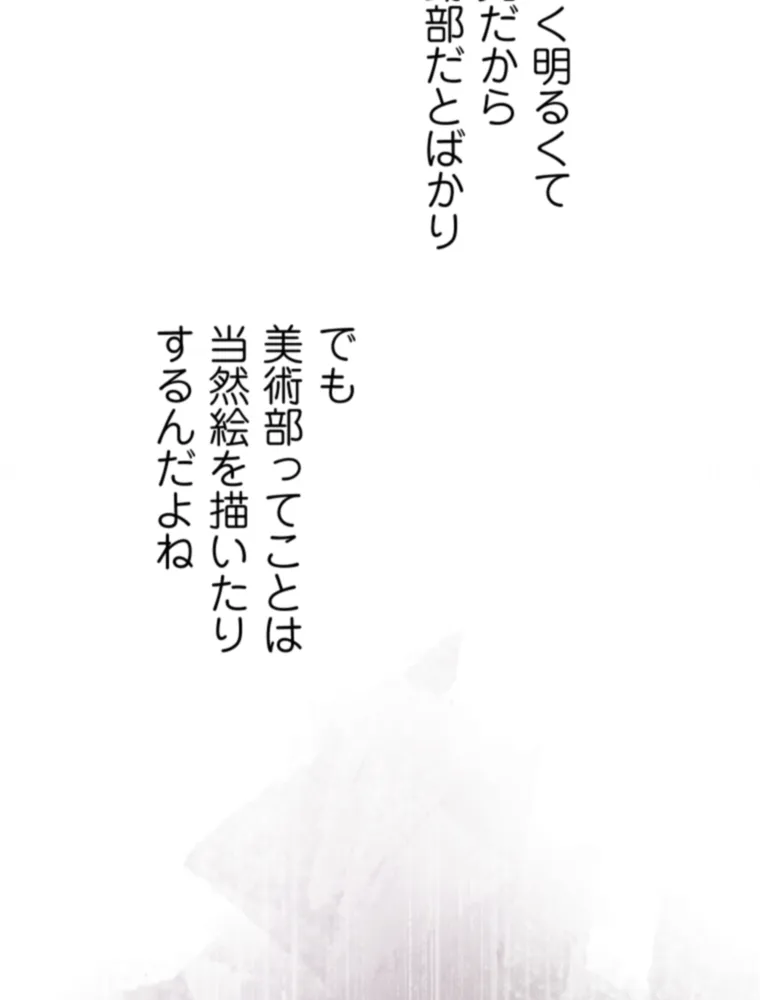 く明るくて
だから
部だとばかり
でも
美術部ってことは
当然絵を描いたり
するんだよね